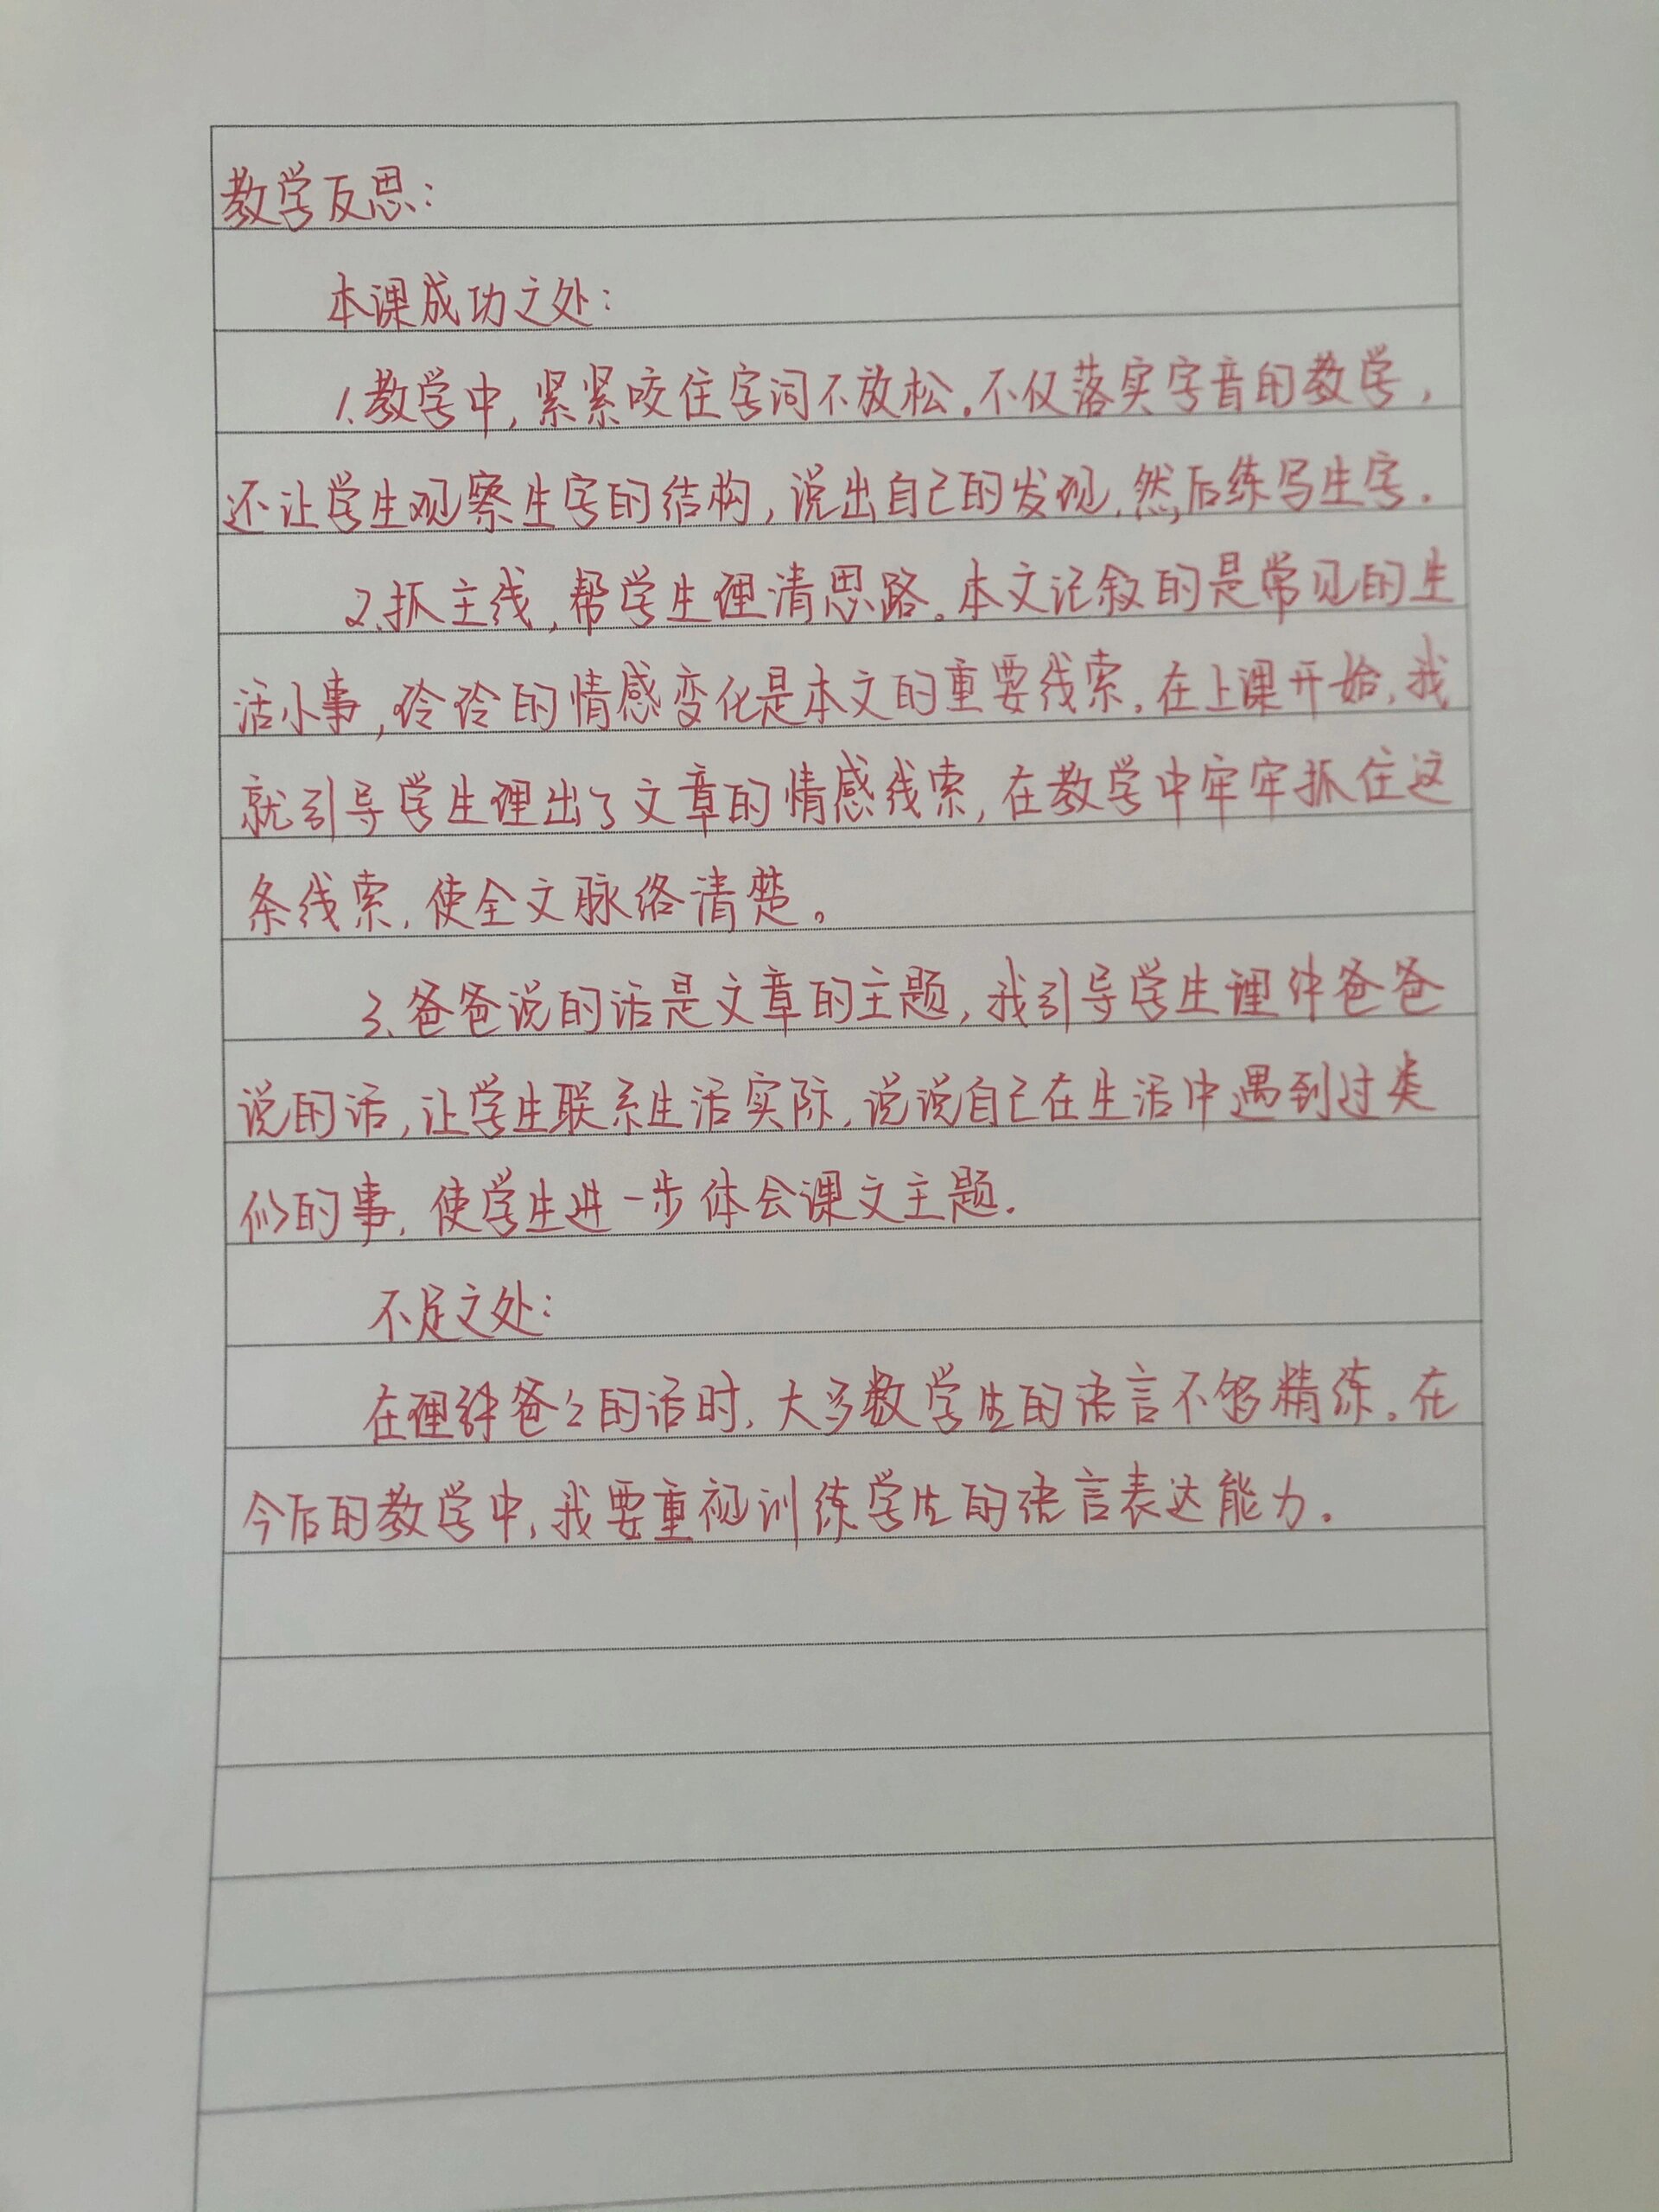 教学反思:
本课成功之处:
1.教学中,紧紧咬住字词不放松。不仅落实字音的教学,
还让学生观察生字的结构,说出自己的发现,然后练写生字.
2.抓主线,帮学生理清思路。本文记叙的是常见的生
活小事,玲玲的情感变化是本文的重要线索.在上课开始,我
就引导学生理出了文章的情感线索,在教学中牢牢抓住这
条线索,使全文脉络清楚。
3、爸爸说的话是文章的主题,我引导学生理解爸爸
说的话,让学生联系生活实际,说说自己在生活中遇到过类
似的事,使学生进一步体会课文主题.
不足之处:
在理解爸々的话时,大多数学生的语言不够精练。在
今后的教学中,我要重视训练学生的语言表达能力.